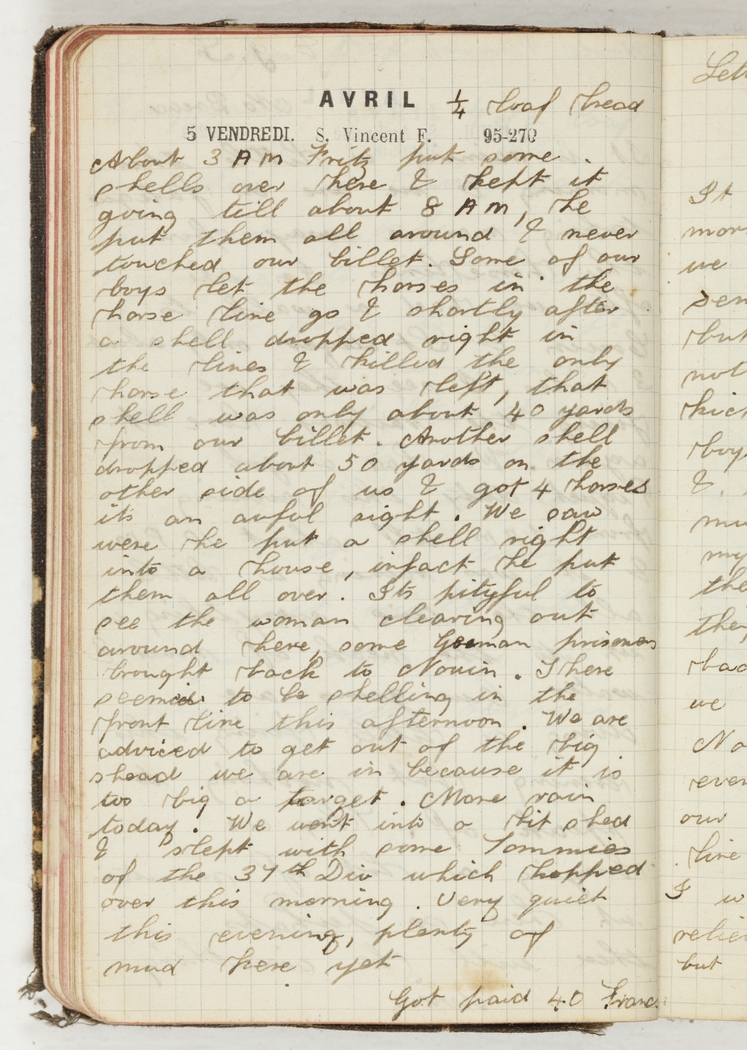 AVRIL ¼ loaf bread
5 VENDREDI. S. Vincent F. 95-270
About 3 AM Fritz put some
shells over here & kept it
going till about 8 AM, he
put them all around & never
touched our billet. Some of our
boys let the horses in the
horse line go & shortly after
a shell dropped right in
the lines & killed the only
horse that was left, that
shell was only about 40 yards
from our billet. Another shell
dropped about 50 yards on the
other side of us & got 4 horses
its an awful sight. We saw
were he put a shell right
into a house, infact he put
them all over. Its pityful to
see the woman clearing out
around here, some German prisoners
brought back to Nouin. There
seemed to be shelling in the
front line this afternoon. We are
adviced to get out of the big
shead we are in because it is
too big a target. More rain
today. We went into a bit shed
& slept with some Tommies
of the 37th Div which hopped
over this morning. Very quiet
this evening, plenty of
mud here yet
Got paid 40 Francs
Let
It
mor
we
sen
but
not
kick
boy
&
mu
my
the
they
bad
we
No
ever
our
line
I w
relie
but